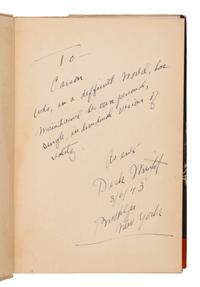 To —
Carson
who, in a different world, has
maintained her own personal,
single, individual vision of
reality.
As ever
Dick Wright
Brooklyn
New York